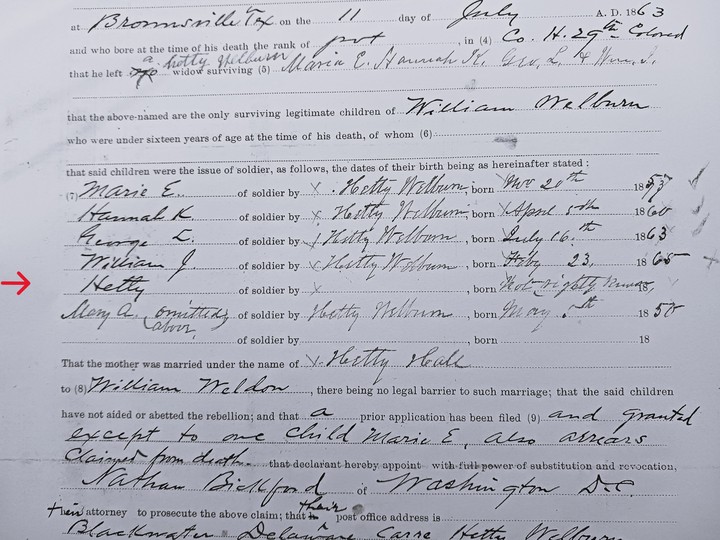 at Brownsville Tex on the 11 day of July A. D. 1863
and who bore at the time of his death the rank of pvt , in (4) Co. H. 29th Colored
a Hetty Welburn
that he left widow surviving (5) Maria E. Hannah K. Geo, L. & Wm. J.
that the above-named are the only surviving legitimate children of William Welburn
who were under sixteen years of age at the time of his death, of whom (6)
that said children were the issue of soldier, as follows, the dates of their birth being as hereinafter stated :
(7) Marie E. of soldier by X . Hetty Welburn, born Nov 20th 1857
Hannah K of soldier by X Hetty Welburn, born April 5th 1860
George L. of soldier by Hetty Welburn , born July 16.th 1863
William J. of soldier by X Hetty Welburn , born Feby 23. 1865
Hetty of soldier by X , born Not rightly 18
Mary A. (omitted above) of soldier by Hetty Welburn , born May th 1850
of soldier by , born 18
That the mother was married under the name of X. Hetty Hall
to (8) William Weldon , there being no legal barrier to such marriage; that the said children
have not aided or abetted the rebellion; and that a prior application has been filed (9) and granted
except to one child Marie E, also arrears
Claimed from death. that declarant hereby appoint with full power of substitution and revocation,
Nathan Bickford of Washington D.C.
their attorney to prosecute the above claim; that their post office address is
Blackwater Delaware Care Hetty Welburn